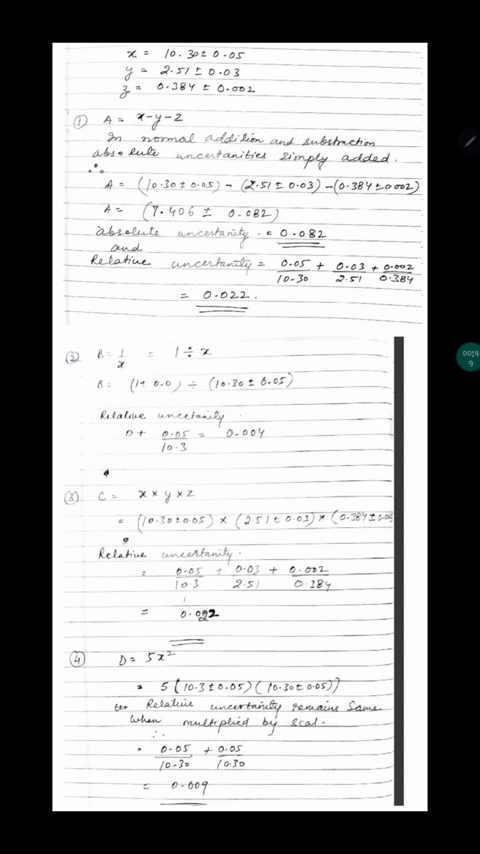 x = 10.30 ± 0.05
y = 2.51 ± 0.03
z = 0.384 ± 0.002
① A = x-y-z
In normal addision and substraction
absolute uncertanities simply added.
∴
A = (10.30 ± 0.05) - (2.51 ± 0.03) - (0.384 ± 0.002)
A = (7.406 ± 0.082)
absolute uncetanity = 0.082
and
Relative uncetanity = 0.05/10.30 + 0.03/2.51 + 0.002/0.384
= 0.022.
② B = 1/x = 1 ÷ x
B = (1± 0.0) ÷ (10.30 ± 0.05)
Relative uncetanity.
0 + 0.05/10.3 = 0.004
③ C = x × y × z
= (10.30±0.05) × (2.51 ± 0.03) × (0.384 ± 0.00
Relative uncertanity.
= 0.05/10.3 + 0.03/2.51 + 0.002/0.384
= 0.022
④ D = 5x²
= 5 (10.3 ± 0.05) (10.30 ± 0.05)
Relative uncertanity remains same
when multiplied by scal.
∴
= 0.05/10.30 + 0.05/10.30
= 0.009